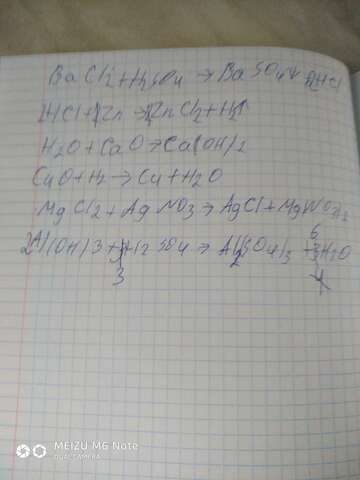 BaCl2+H2SO4→BaSO4↓+2HCl
2HCl+Zn→ZnCl2+H2↑
H2O+CaO→Ca(OH)2
CuO+H2→Cu+H2O
MgCl2+AgNO3→AgCl+Mg(NO3)2
2Al(OH)3+3H2SO4→Al2(SO4)3+6H2O
MEIZU M6 Note
DUAL CAMERA